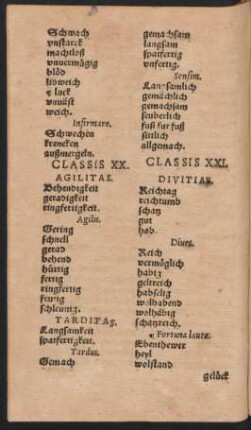 Schwach
vnstarck
machtloß
vnuermügig
blöd
lidweich
¶ luck
vnuäst
weich.
Infirmare.
Schwechen
krencken
außmergeln.
CLASSIS XX.
AGILITAS.
Behendigkeit
geradigkeit
ringfertigkeit.
Agilis.
Gering
schnell
gerad
behend
hürtig
fertig
ringfertig
feurig
schleunig.
TARDITAS.
Langsamkeit
spatfertigkeit.
Tardus.
Gemach
gemachsam
langsam
spatfertig
vnfertig.
Sensim.
Langsamlich
gemächlich
gemachsam
seuberlich
fuß fur fuß
sitlich
allgemach.
CLASSIS XXI.
DIVITIAE.
Reichtag
reichtumb
schatz
gut
hab.
Diues.
Reich
vermöglich
habig
geltreich
habselig
wolhabend
wolhäbig
schatzreich.
¶ Fortuna lauta.
Ebenthewer
heyl
wolstand
gelück